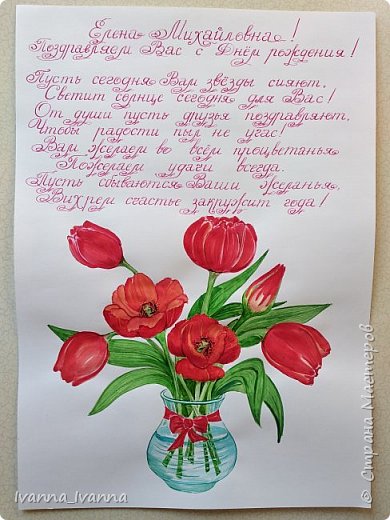 Елена Михайловна!
Поздравляем Вас с Днём рождения!
Пусть сегодня Вам звёзды сияют,
Светит солнце сегодня для Вас!
От души пусть друзья поздравляют,
Чтобы радости пыл не угас!
Вам желаем во всём процветанья
Пожелаем удачи всегда.
Пусть сбываются Ваши желанья,
Вихрем счастье закружит года!
Ivanna_Ivanna
© Страна Мастеров